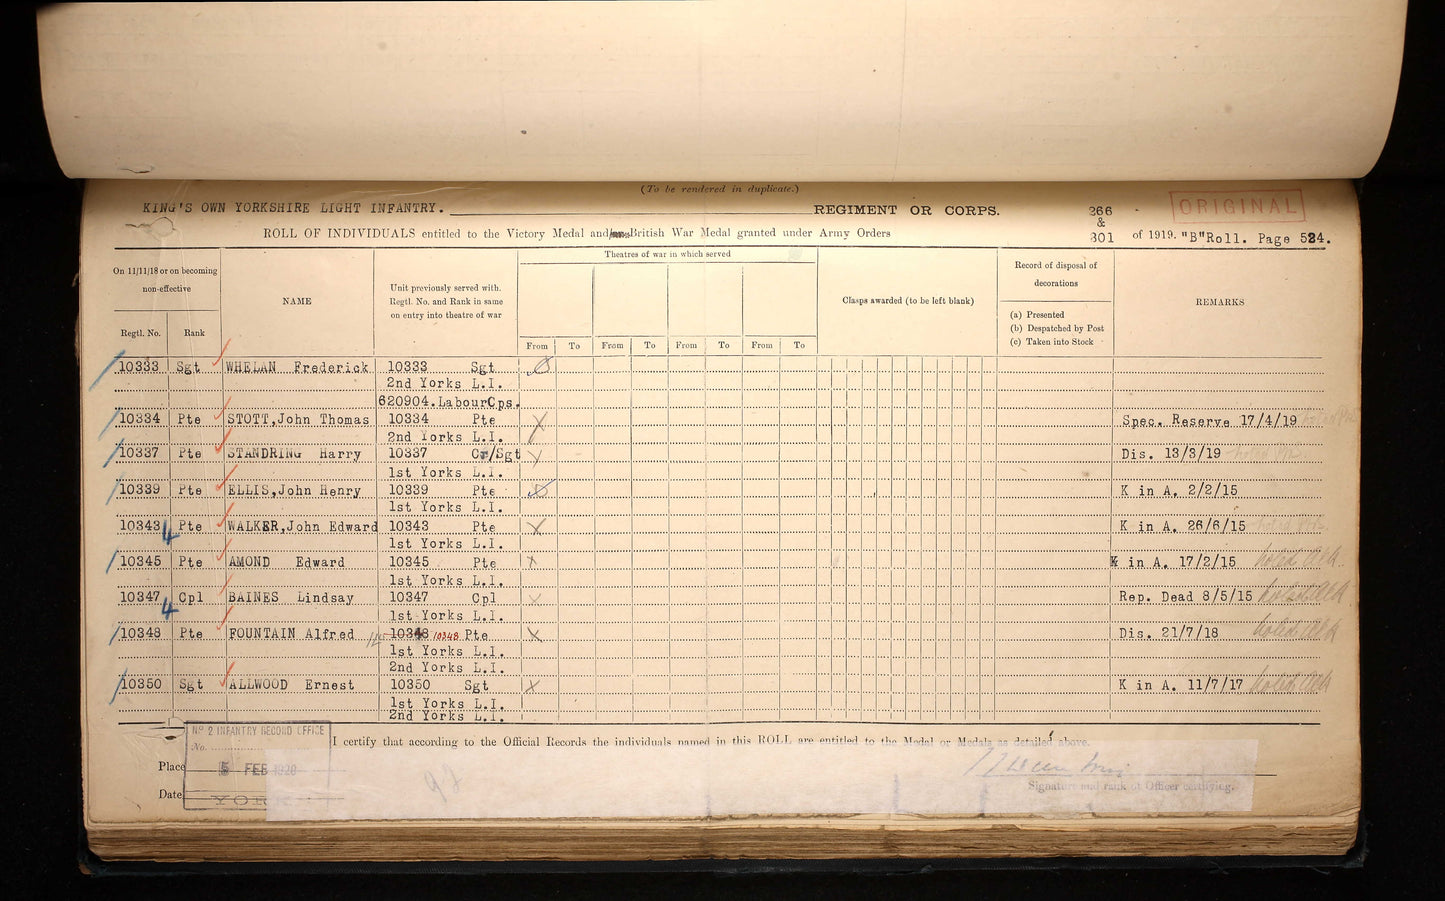 (To be rendered in duplicate.)
KING'S OWN YORKSHIRE LIGHT INFANTRY. REGIMENT OR CORPS. 266 ORIGINAL
&
ROLL OF INDIVIDUALS entitled to the Victory Medal and British War Medal granted under Army Orders 301 of 1919. "B"Roll. Page 524.
On 11/11/18 or on becoming non-effective
Regtl. No. Rank
NAME
Unit previously served with. Regtl. No. and Rank in same on entry into theatre of war
Theatres of war in which served
From To From To From To From To
Clasps awarded (to be left blank)
Record of disposal of decorations
(a) Presented
(b) Despatched by Post
(c) Taken into Stock
REMARKS
10333 Sgt WHELAN Frederick 10333 Sgt
2nd Yorks L.I.
620904.LabourCps.
10334 Pte STOTT,John Thomas 10334 Pte Spec. Reserve 17/4/19
2nd Yorks L.I.
10337 Pte STANDRING Harry 10337 Cr/Sgt Dis. 13/3/19
1st Yorks L.I.
10339 Pte ELLIS,John Henry 10339 Pte K in A. 2/2/15
1st Yorks L.I.
10343 4 Pte WALKER,John Edward 10343 Pte K in A. 26/6/15
1st Yorks L.I.
10345 Pte AMOND Edward 10345 Pte K in A. 17/2/15
1st Yorks L.I.
10347 4 Cpl BAINES Lindsay 10347 Cpl Rep. Dead 8/5/15
1st Yorks L.I.
10348 Pte FOUNTAIN Alfred 10348 10348 Pte Dis. 21/7/18
1st Yorks L.I.
2nd Yorks L.I.
10350 Sgt ALLWOOD Ernest 10350 Sgt K in A. 11/7/17
1st Yorks L.I.
2nd Yorks L.I.
No 2 INFANTRY RECORD OFFICE
No.
5 FEB 1920
YORK
I certify that according to the Official Records the individuals named in this ROLL are entitled to the Medal or Medals as detailed above.
Place
Date
Signature and rank of Officer certifying.